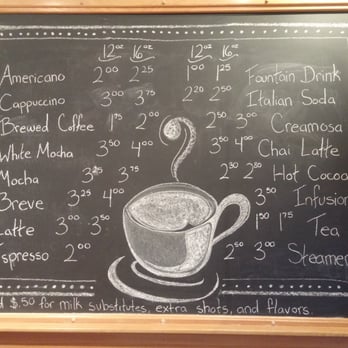 12oz 16oz 12oz 16oz
Americano 2.00 2.25 1.00 1.25 Fountain Drink
Cappuccino 3.00 3.75 2.20 2.50 Italian Soda
Brewed Coffee 1.75 2.00 2.50 3.00 Creamosa
White Mocha 3.50 4.00 3.50 4.00 Chai Latte
Mocha 3.25 3.75 2.50 2.80 Hot Cocoa
Breve 3.25 4.00 3.50 Infusion
Latte 3.00 3.50 1.50 1.75 Tea
Espresso 2.00 2.50 3.00 Steamer
$.50 for milk substitutes, extra shots, and flavors.